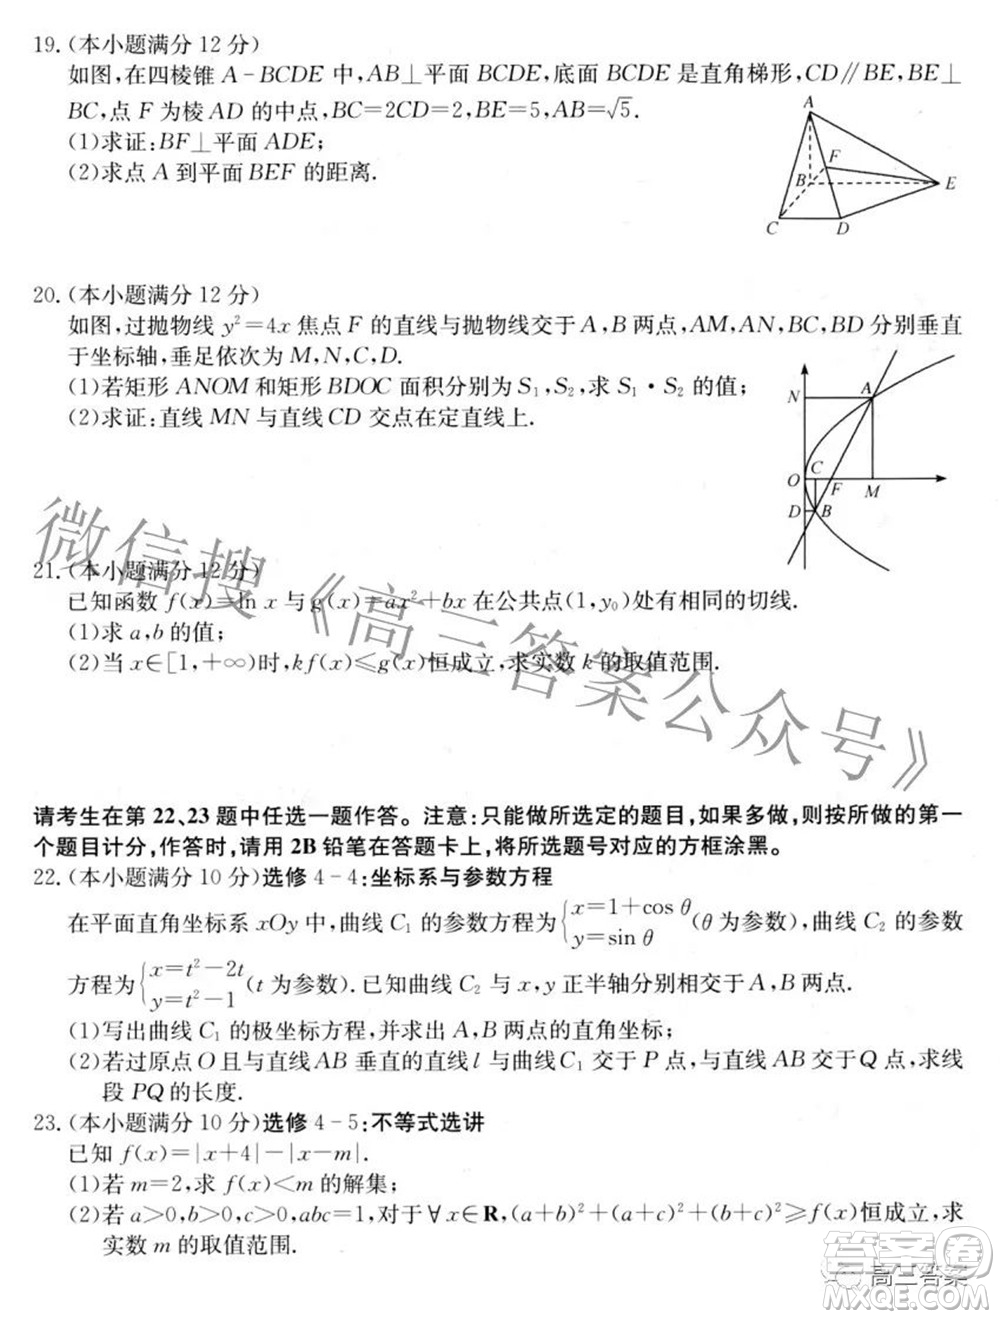 19.(本小题满分 12 分)
如图,在四棱锥 A-BCDE 中,AB⊥平面 BCDE,底面 BCDE 是直角梯形,CD∥BE,BE⊥
BC,点 F 为棱 AD 的中点,BC=2CD=2,BE=5,AB=√5.
(1)求证:BF⊥平面 ADE;
(2)求点 A 到平面 BEF 的距离.
A
F
B
E
C
D
20.(本小题满分 12 分)
如图,过抛物线 y²=4x 焦点 F 的直线与抛物线交于 A,B 两点,AM,AN,BC,BD 分别垂直
于坐标轴,垂足依次为 M,N,C,D.
(1)若矩形 ANOM 和矩形 BDOC 面积分别为 S₁,S₂,求 S₁·S₂ 的值;
(2)求证:直线 MN 与直线 CD 交点在定直线上.
N
A
O
C
F
M
D
B
微信搜《高三答案公众号》
21.(本小题满分 12 分)
已知函数 f(x)=ln x 与 g(x)=ax²+bx 在公共点(1,y₀)处有相同的切线.
(1)求 a,b 的值;
(2)当 x∈[1,+∞)时,kf(x)≤g(x)恒成立,求实数 k 的取值范围.
请考生在第 22、23 题中任选一题作答。注意:只能做所选定的题目,如果多做,则按所做的第一
个题目计分,作答时,请用 2B 铅笔在答题卡上,将所选题号对应的方框涂黑。
22.(本小题满分 10 分)选修 4-4:坐标系与参数方程
在平面直角坐标系 xOy 中,曲线 C₁ 的参数方程为 {x=1+cos θ y=sin θ (θ 为参数),曲线 C₂ 的参数
方程为 {x=t²-2t y=t²-1 (t 为参数).已知曲线 C₂ 与 x,y 正半轴分别相交于 A,B 两点.
(1)写出曲线 C₁ 的极坐标方程,并求出 A,B 两点的直角坐标;
(2)若过原点 O 且与直线 AB 垂直的直线 l 与曲线 C₁ 交于 P 点,与直线 AB 交于 Q 点,求线
段 PQ 的长度.
23.(本小题满分 10 分)选修 4-5:不等式选讲
已知 f(x)=|x+4|-|x-m|.
(1)若 m=2,求 f(x)<m 的解集;
(2)若 a>0,b>0,c>0,abc=1,对于∀x∈R,(a+b)²+(a+c)²+(b+c)²≥f(x)恒成立,求
实数 m 的取值范围.
答案圈
高三答案
MXQE.COM